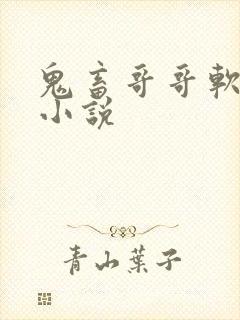 鬼畜哥哥軟
小說
青山葉子